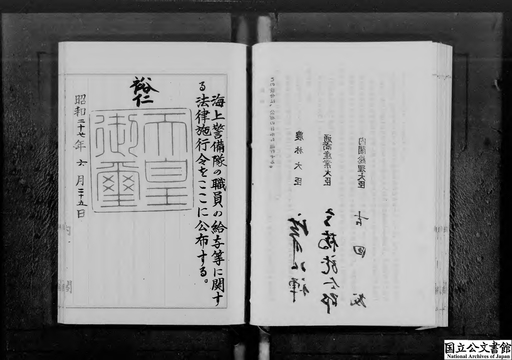 内閣総理大臣 吉田茂
通商産業大臣 高橋龍太郎
農林大臣
海上警備隊の職員の給与等に関す
る法律施行令をここに公布する。
裕仁
天皇
御璽
昭和二十七年六月二十五日
国立公文書館
National Archives of Japan